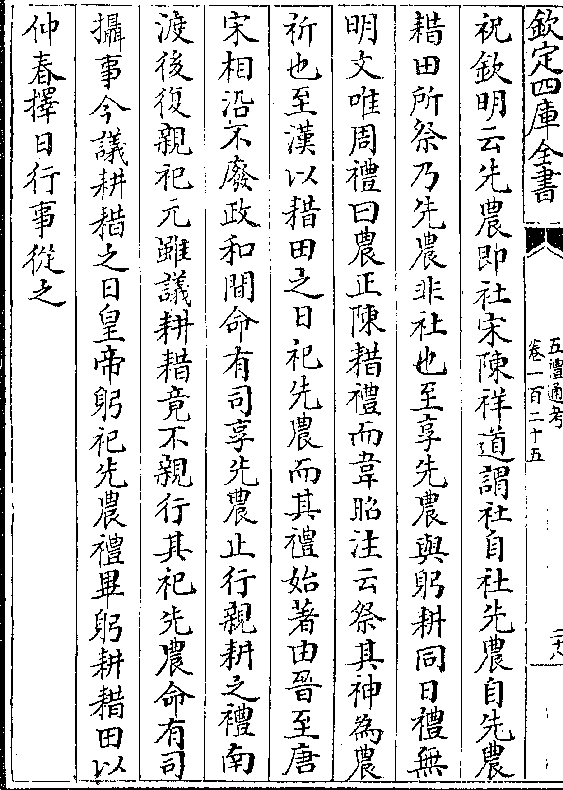 欽定四庫全書
五禮通考
卷一百二十五
二十八
祝欽明云先農即社宋陳祥道謂社自社先農自先農
耤田所祭乃先農非社也至享先農與躬耕同日禮無
明文唯周禮曰農正陳耤禮而韋昭注云祭其神為農
祈也至漢以耤田之日祀先農而其禮始著由晉至唐
宋相沿不廢政和間命有司享先農止行親耕之禮南
渡後復親祀元雖議耕耤竟不親行其祀先農命有司
攝事今議耕耤之日皇帝躬祀先農禮畢躬耕耤田以
仲春擇日行事從之